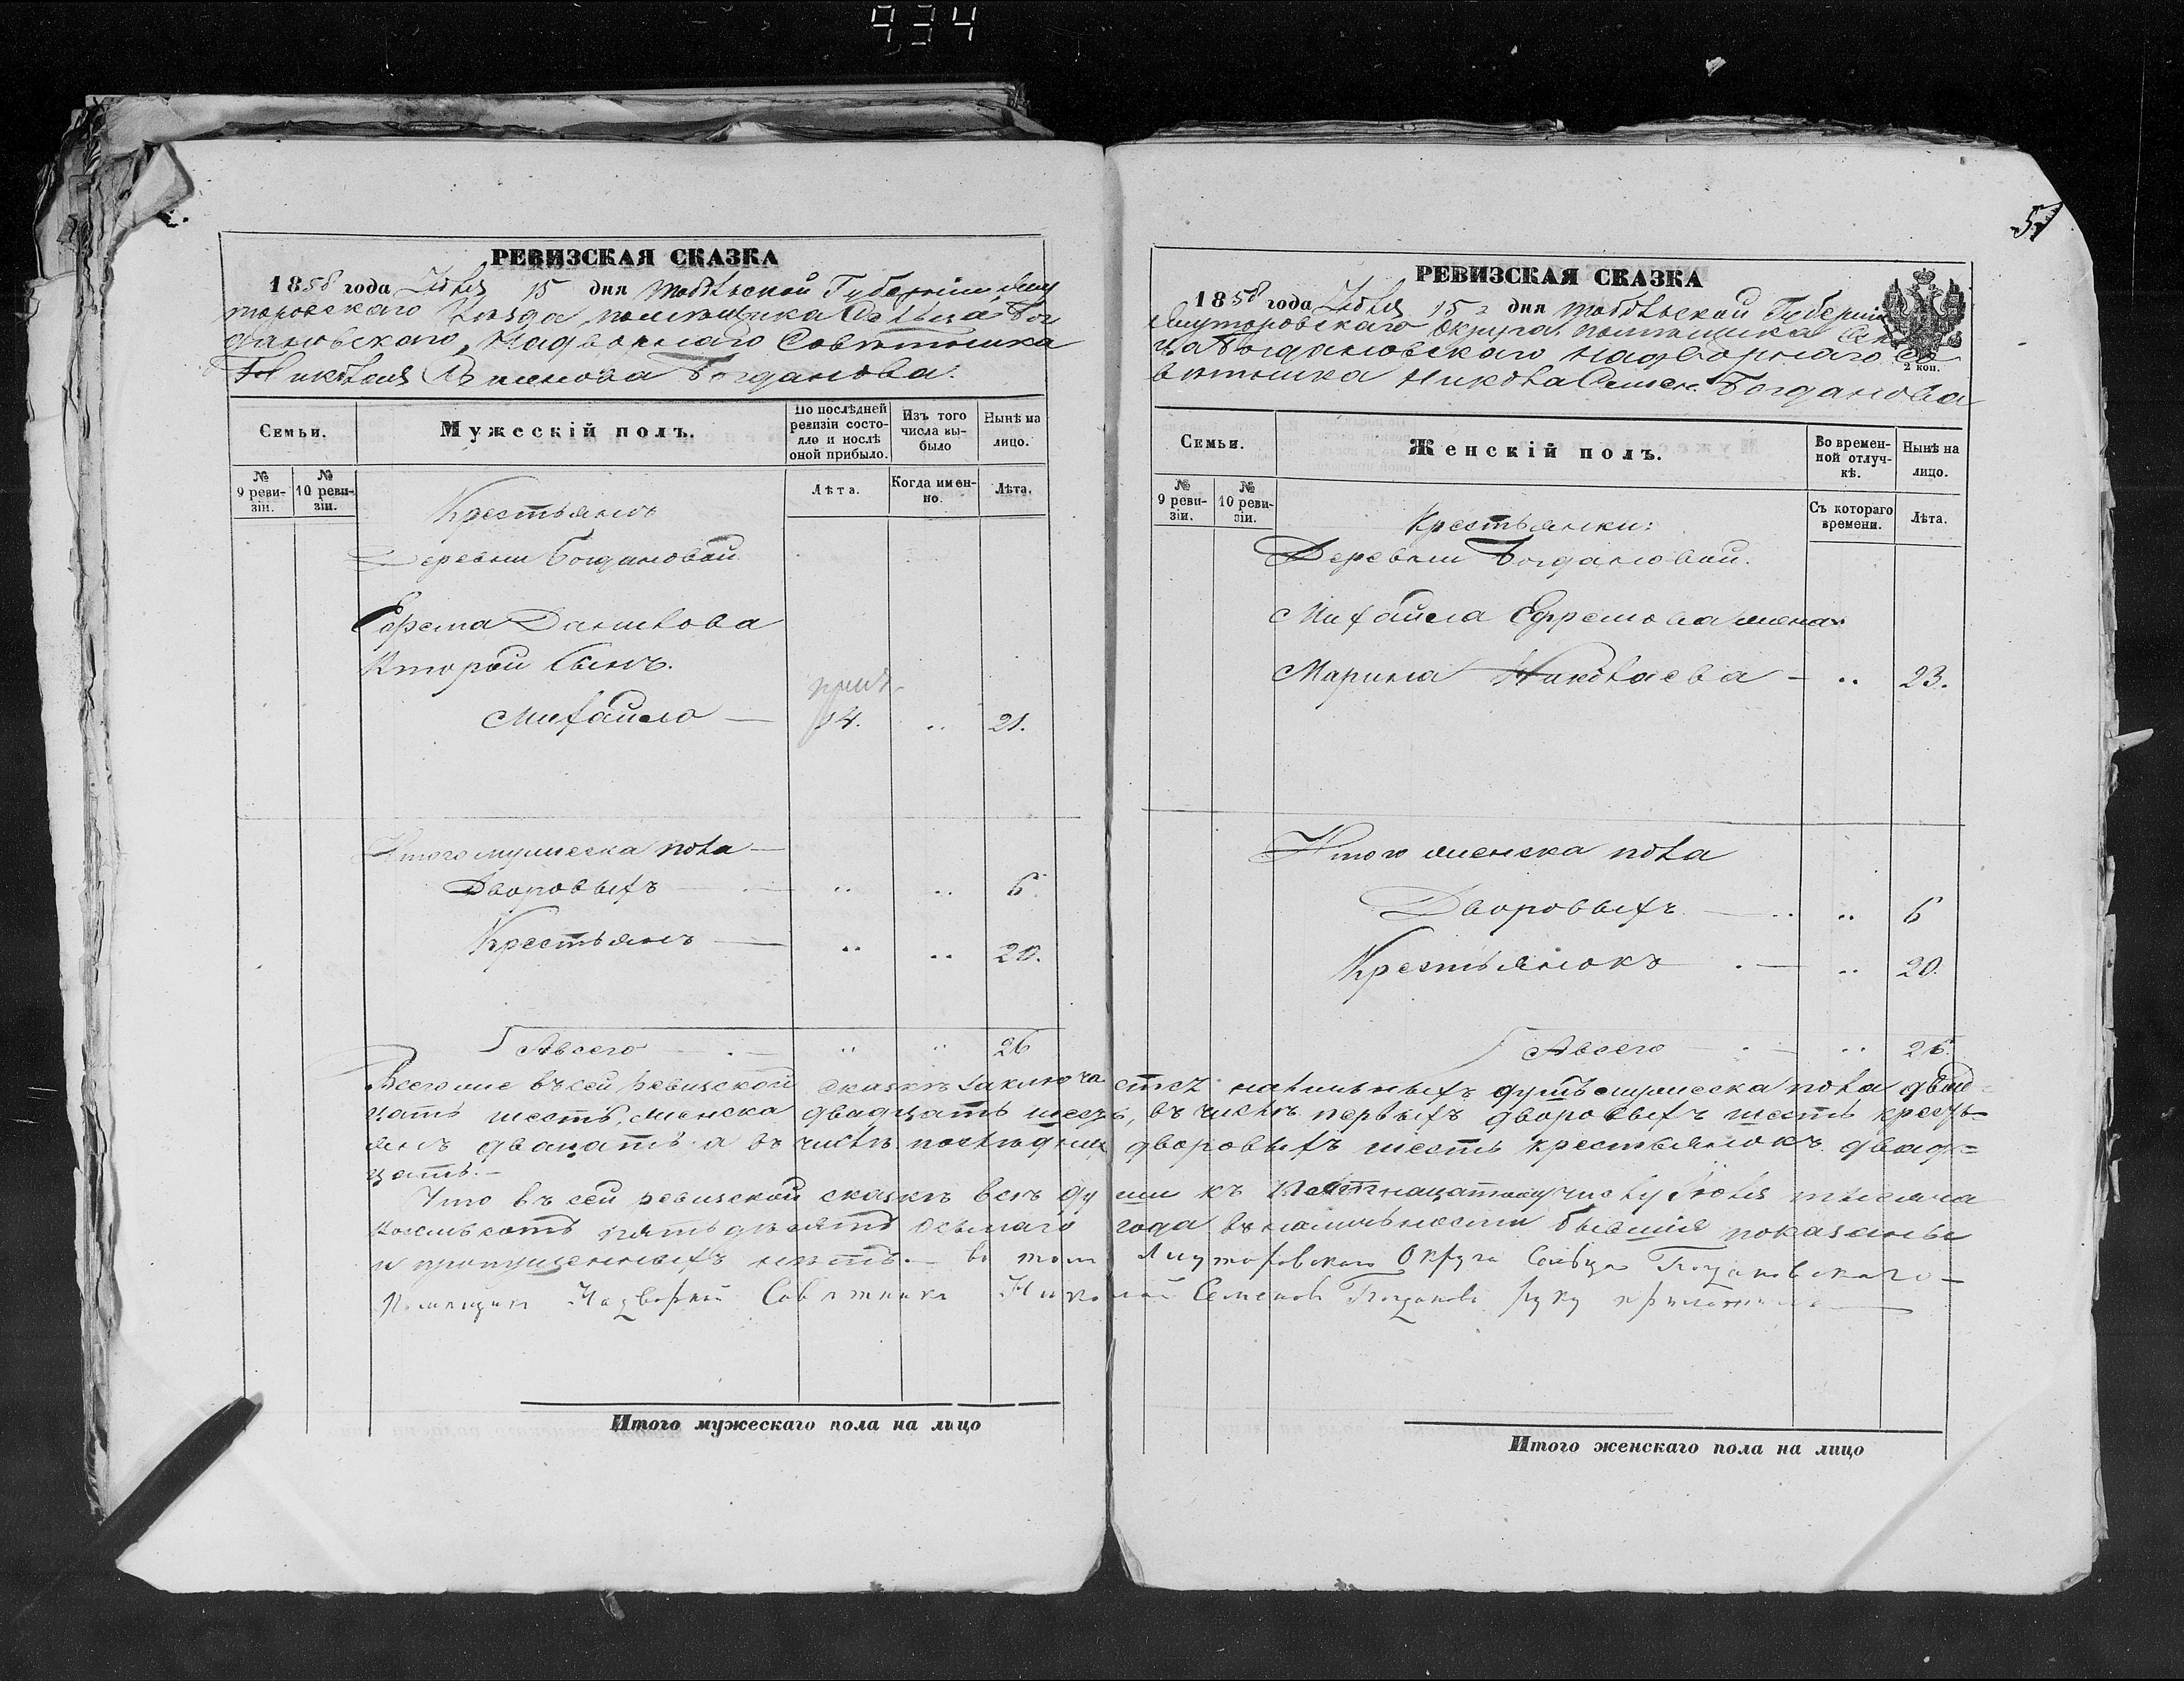 934
РЕВИЗСКАЯ СКАЗКА
1858 года Іюля 15 дня Тобольской Губерніи Ялу
торовскаго Уѣзда, помѣщика Сельца Бог
дановскаго, Надворнаго Совѣтника
Николая Семенова Богданова.
Семьи.
Мужескій полъ.
По послѣдней ревизіи состояло и послѣ оной прибыло.
Изъ того числа выбыло
Нынѣ на лицо.
№ 9 ревизіи.
№ 10 ревизіи.
Лѣта.
Когда именно.
Лѣта.
Крестьянъ
Деревни Богдановой
Ефрема Данилова
Второй Сынъ.
Михайло — 14. .. 21.
Итого мужеска пола —
Дворовыхъ — .. .. 6.
Крестьянъ — .. .. 20.
А всего — .. .. 26
51
РЕВИЗСКАЯ СКАЗКА
1858 года Іюля 15 дня Тобольской Губерніи
Ялуторовскаго Округа, помѣщика Сель
ца Богдановскаго Надворнаго Со
вѣтника Никола Семен. Богданова
2 коп.
Семьи.
Женскій полъ.
Во временной отлучкѣ.
Нынѣ на лицо.
№ 9 ревизіи.
№ 10 ревизіи.
Съ котораго времени.
Лѣта.
Крестьянки:
Деревни Богдановой.
Михайла Ефремова жена
Марина Николаева — .. 23.
Итого женска пола
Дворовыхъ — .. .. 6
Крестьянокъ . — .. 20.
А всего . — .. 26.
Всего же въ сей ревизской сказкѣ заключается наличныхъ душъ мужеска пола двад
цать шесть, женска двадцать шесть, въ числѣ первыхъ дворовыхъ шесть кресть
янъ двацать а въ числѣ послѣднихъ дворовыхъ шесть крестьянокъ двад=
цать.—
Что въ сей ревизской сказкѣ всѣ души къ числу Іюля тысяча
восемьсотъ пятьдесятъ осьмаго года въ наличности бывшія показаны
и пропущенныхъ нѣтъ.— въ том Ялуторовскаго Округа Сельца Богдановскаго—
Помещикъ Надворной Советникъ Николай Семеновъ Богдановъ руку приложилъ —
Итого мужескаго пола на лицо
Итого женскаго пола на лицо